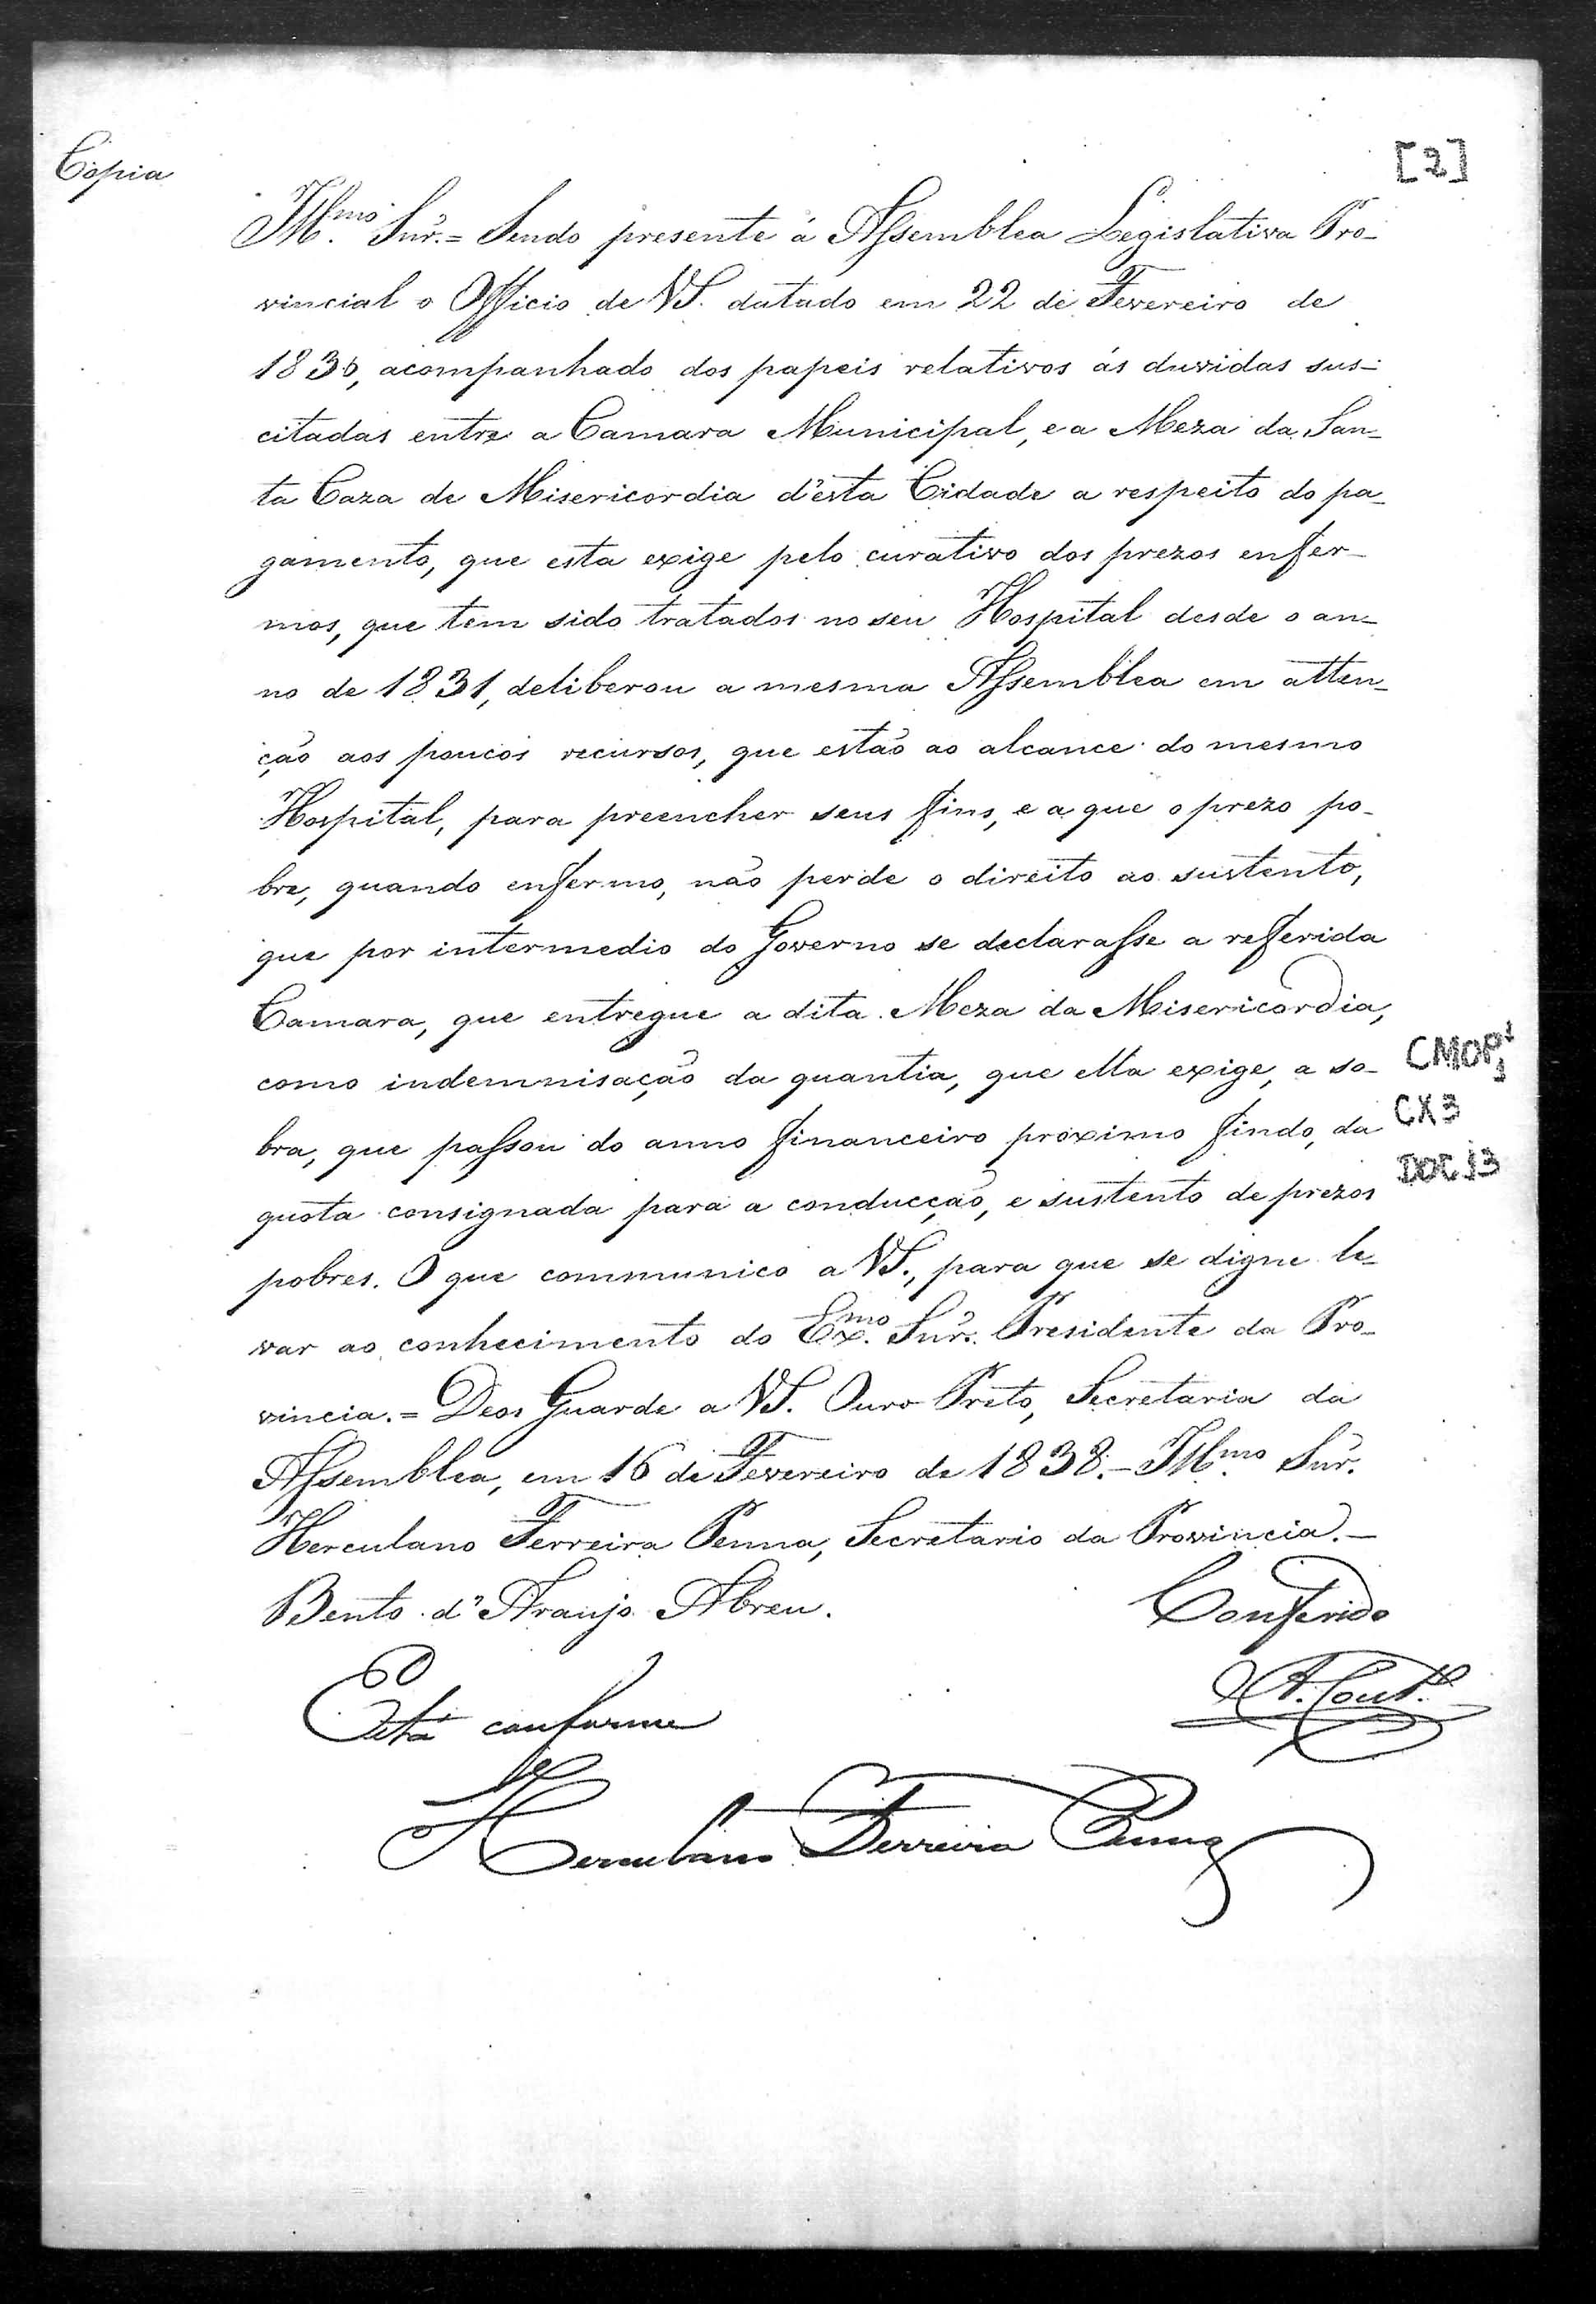 Copia
[2]
Ill.mo Snr. = Sendo presente á Assemblea Legislativa Pro-
vincial o Officio de VS. datado em 22 de Fevereiro de
1836, acompanhado dos papeis relativos ás duvidas sus-
citadas entre a Camara Municipal, e a Meza da San-
ta Caza de Misericordia d'esta Cidade a respeito do pa-
gamento, que esta exige pelo curativo dos prezos enfer-
mos, que tem sido tratados no seu Hospital desde o an-
no de 1831, deliberou a mesma Assemblea em atten-
ção aos poucos recursos, que estão ao alcance do mesmo
Hospital, para preencher seus fins, e a que o prezo po-
bre, quando enfermo, não perde o direito ao sustento,
que por intermedio do Governo se declarasse a referida
Camara, que entregue a dita Meza da Misericordia,
como indemnisação da quantia, que ella exige, a so-
bra, que passou do anno financeiro proximo findo, da
quota consignada para a conducção, e sustento de prezos
pobres. O que communico a VS., para que se digne le-
var ao conhecimento do Ex.mo Snr. Presidente da Pro-
vincia. = Deos Guarde a VS. Ouro Preto, Secretaria da
Assemblea, em 16 de Fevereiro de 1838. - Ill.mo Snr.
Herculano Ferreira Penna, Secretario da Provincia. -
Bento d'Araujo Abreu.
Conferido
A. Cout.o
Está conforme
Herculano Ferreira Penna
CMOP
CX3
DOC 13